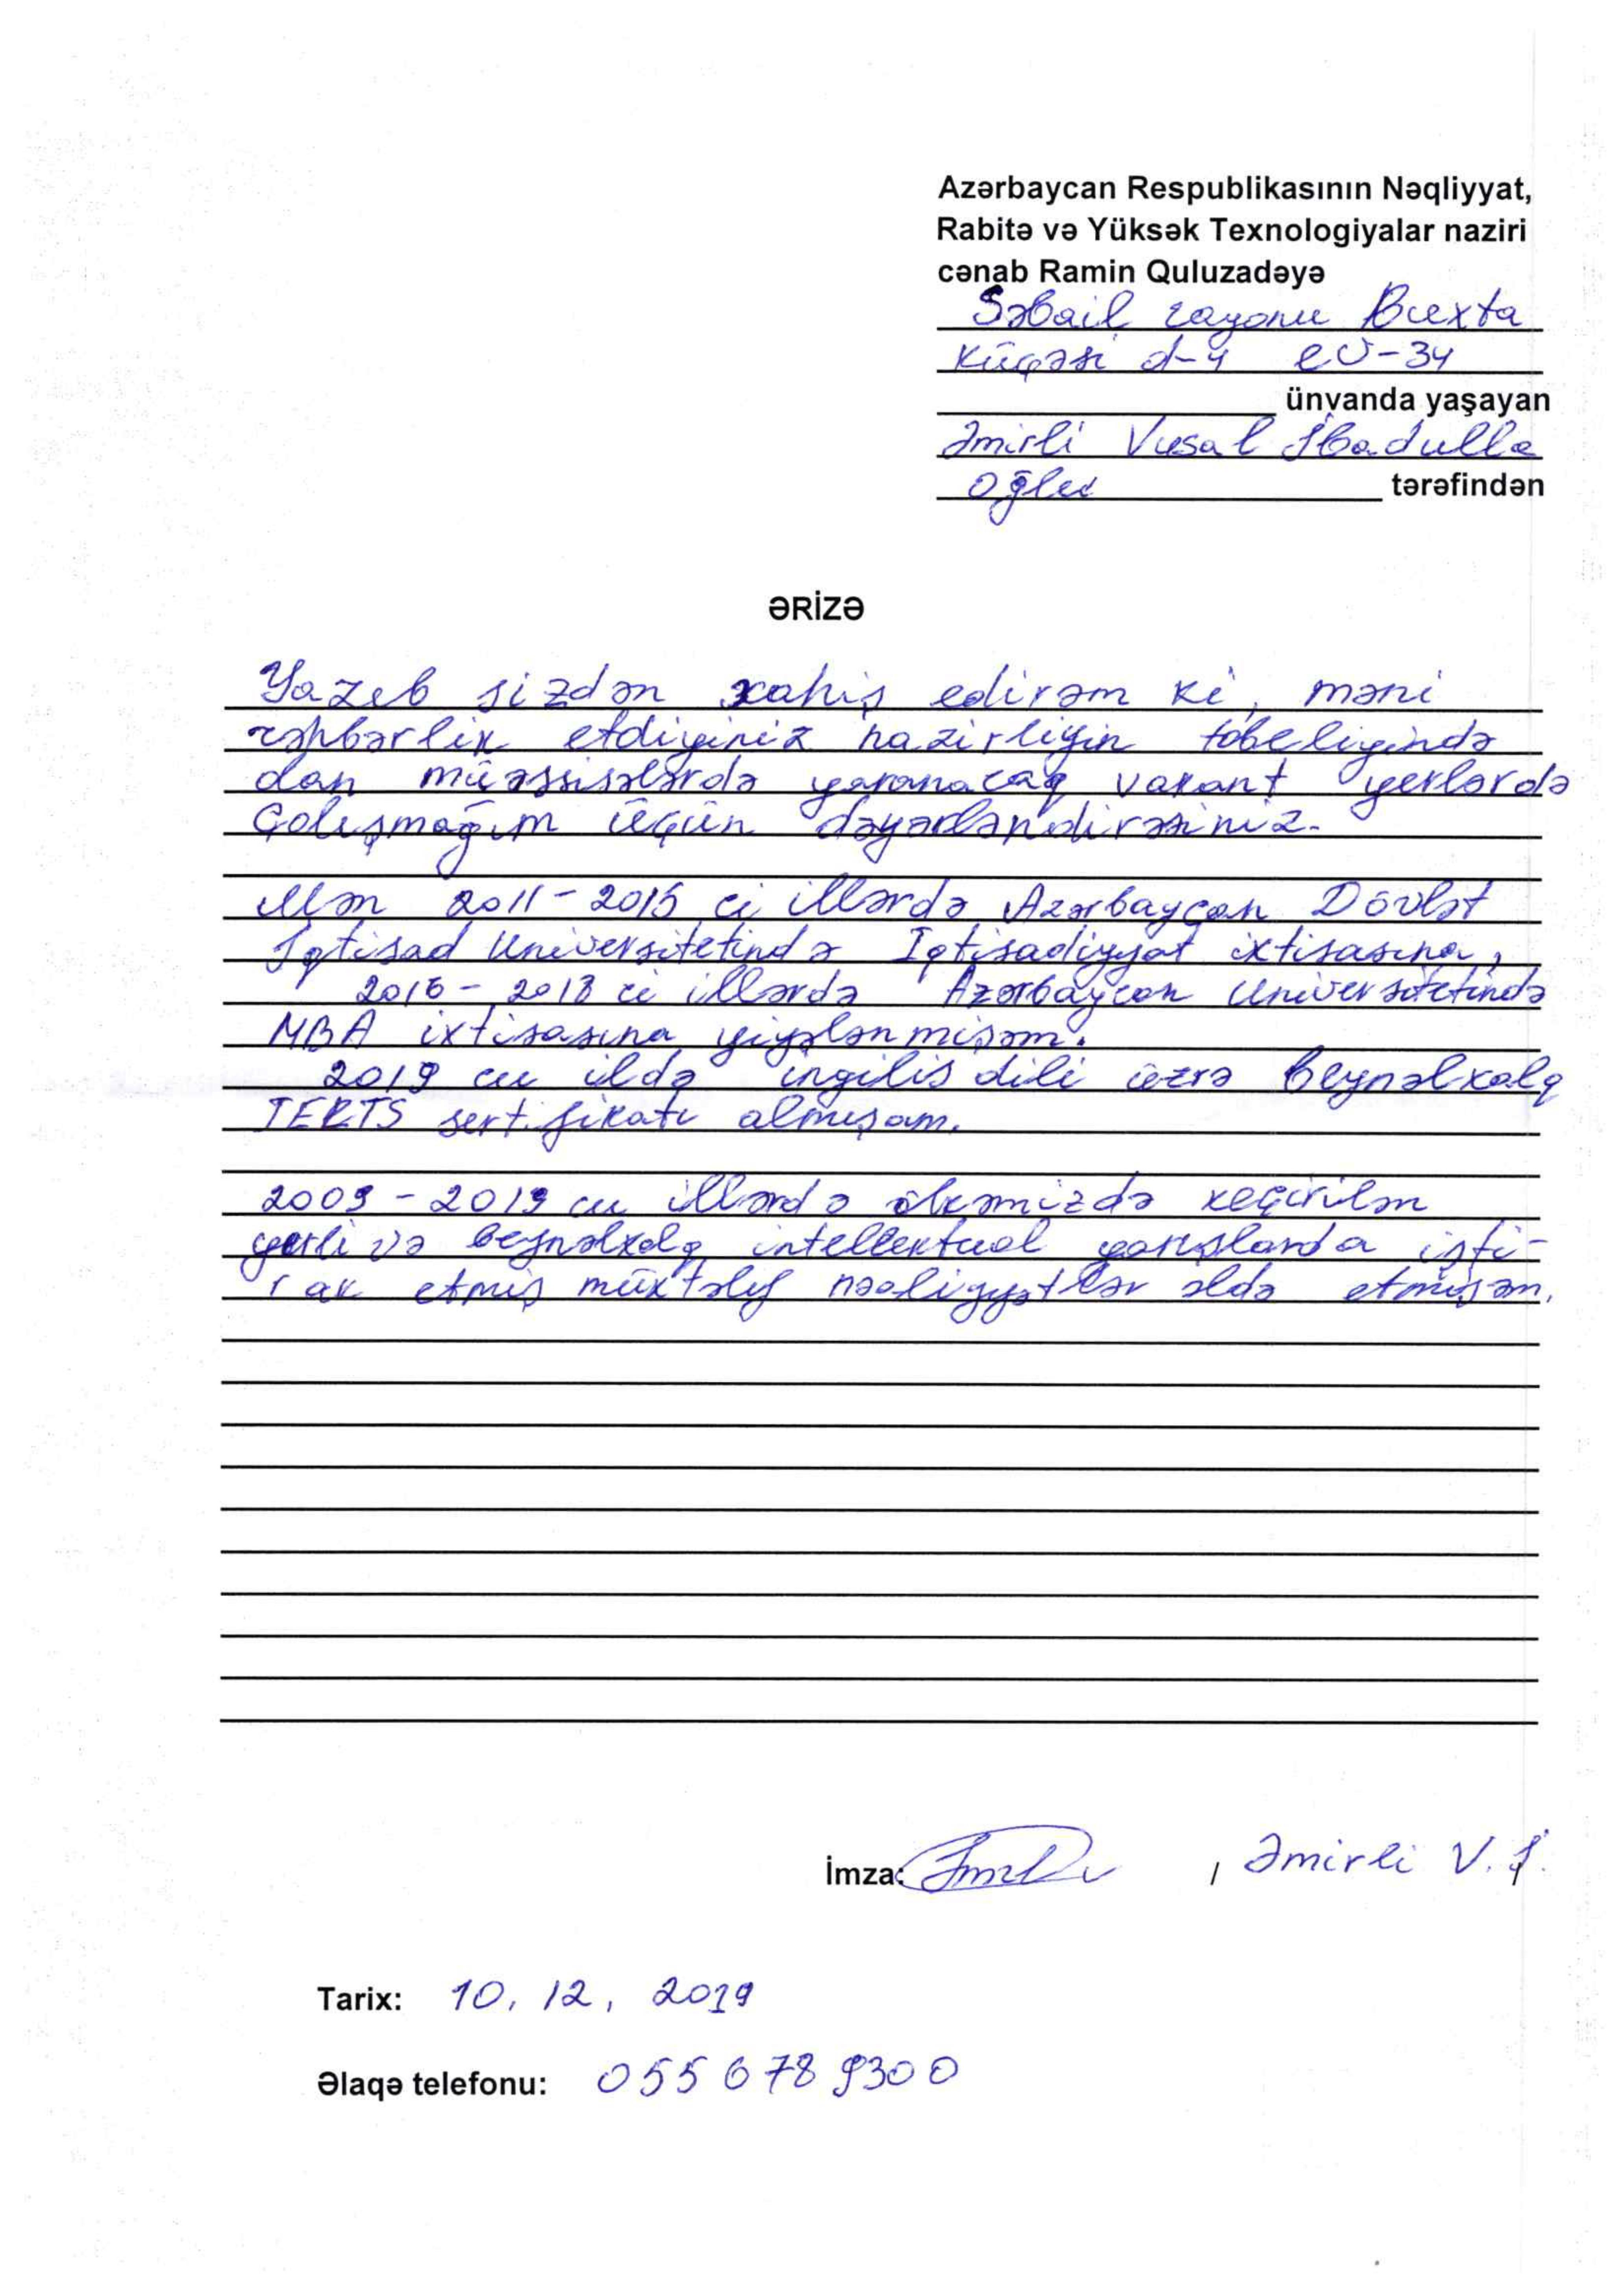 Azərbaycan Respublikasının Nəqliyyat,
Rabitə və Yüksək Texnologiyalar naziri
cənab Ramin Quluzadəyə
Səbail rayonu Buxta
küçəsi d-4 ev-34
ünvanda yaşayan
Əmirli Vusal İbadulla
oğlu tərəfindən
ƏRİZƏ
Yazıb sizdən xahiş edirəm ki, məni
rəhbərlik etdiyiniz nazirliyin tabeliyində
olan müəssisələrdə yaranacaq vakant yerlərdə
çalışmağım üçün dəyərləndirəsiniz.
Mən 2011-2015 ci illərdə Azərbaycan Dövlət
İqtisad Universitetində İqtisadiyyat ixtisasına,
2016-2018 ci illərdə Azərbaycan Universitetində
MBA ixtisasına yiyələnmişəm.
2019 cu ildə ingilis dili üzrə beynəlxalq
IELTS sertifikatı almışam.
2009-2019 cu illərdə ölkəmizdə keçirilən
yerli və beynəlxalq intellektual yarışlarda işti-
rak etmiş müxtəlif nəaliyyətlər əldə etmişəm.
İmza: / Əmirli V.İ.
Tarix: 10.12.2019
Əlaqə telefonu: 055 678 9300